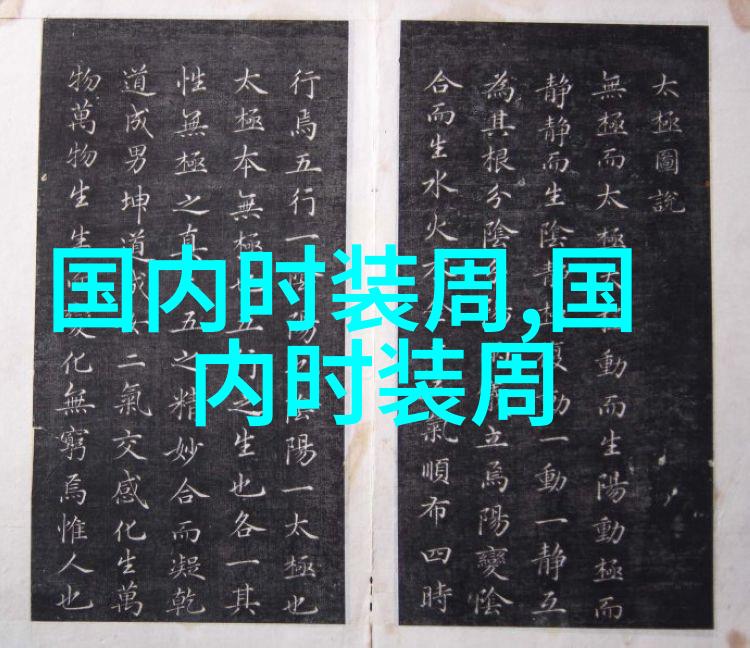 太極圖說
無極而太極太動而生陽動極而
静静而生陰静極復動一動一静互
為其根分陰立焉陽變陰
合而生水火氣順布四時
行焉五行一陰陽陰陽一太極也
太極本無極五之生也各一其
性無極之真五之精妙合而凝乾
道成男坤道成二氣交感化生萬
物萬物生生變化無窮焉惟人也
国内时装周,国
内时装周